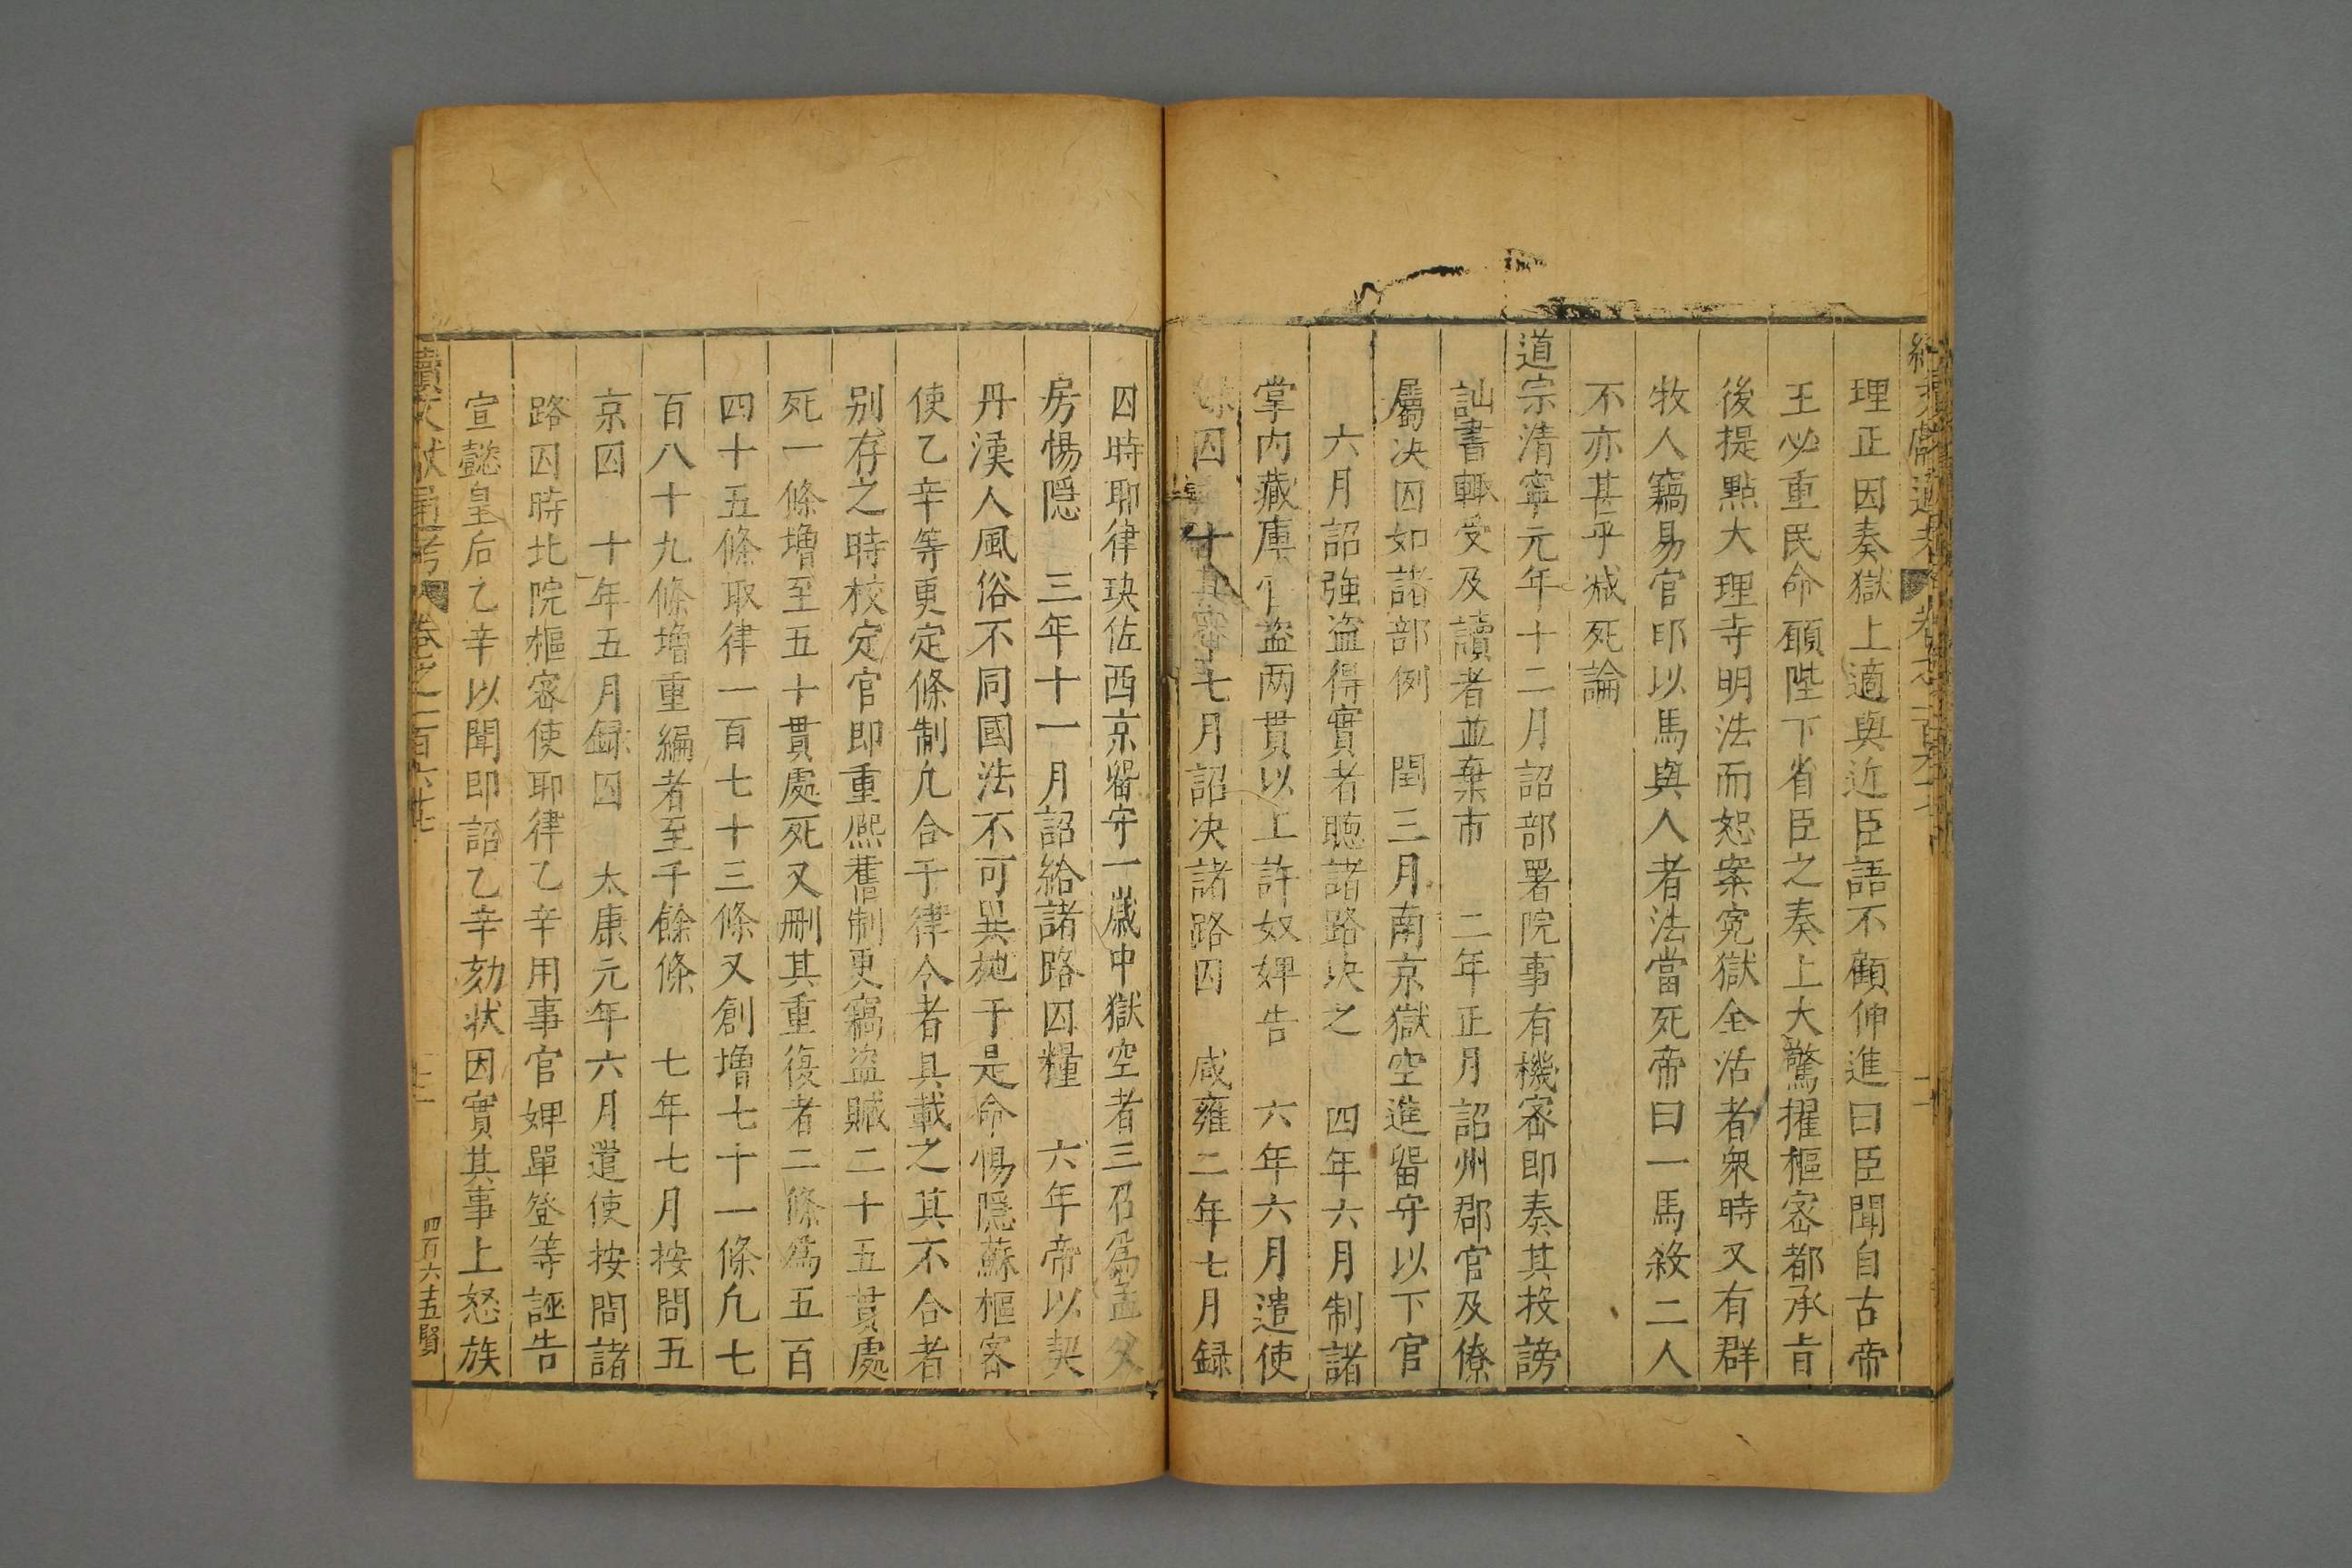 理正因奏獄上適與近臣語不顧伸進曰臣聞自古帝
王必重民命願陛下省臣之奏上大驚擢樞密都承旨
後提點大理寺明法而恕案冤獄全活者衆時又有群
牧人竊易官印以馬與人者法當死帝曰一馬殺二人
不亦甚乎减死論
道宗清寧元年十二月詔部署院事有機密即奏其投謗
訕書輒受及讀者並棄市　二年正月詔州郡官及僚
屬决囚如諸部例　閏三月南京獄空進畱守以下官
六月詔強盗得實者聽諸路决之　四年六月制諸
掌内藏庫官盗两貫以上許奴婢告　六年六月遣使
囚　七月詔决諸路囚　咸雍二年七月録
囚時耶律玦佐西京畱守一歲中獄空者三召爲孟父
房惕隠　三年十一月詔給諸路囚糧　六年帝以契
丹漢人風俗不同國法不可異施于是命惕隠蘇樞密
使乙辛等更定條制凡合于律令者具載之其不合者
别存之時校定官即重熈舊制更竊盗贓二十五貫處
死一條增至五十貫處死又刪其重復者二條爲五百
四十五條取律一百七十三條又創增七十一條凡七
百八十九條增重編者至千餘條　七年七月按問五
京囚　十年五月録囚　太康元年六月遣使按問諸
路囚時北院樞密使耶律乙辛用事官婢單登等誣告
宣懿皇后乙辛以聞即詔乙辛劾状因實其事上怒族
續文獻通考　卷之一百六十七
四百六十五賢